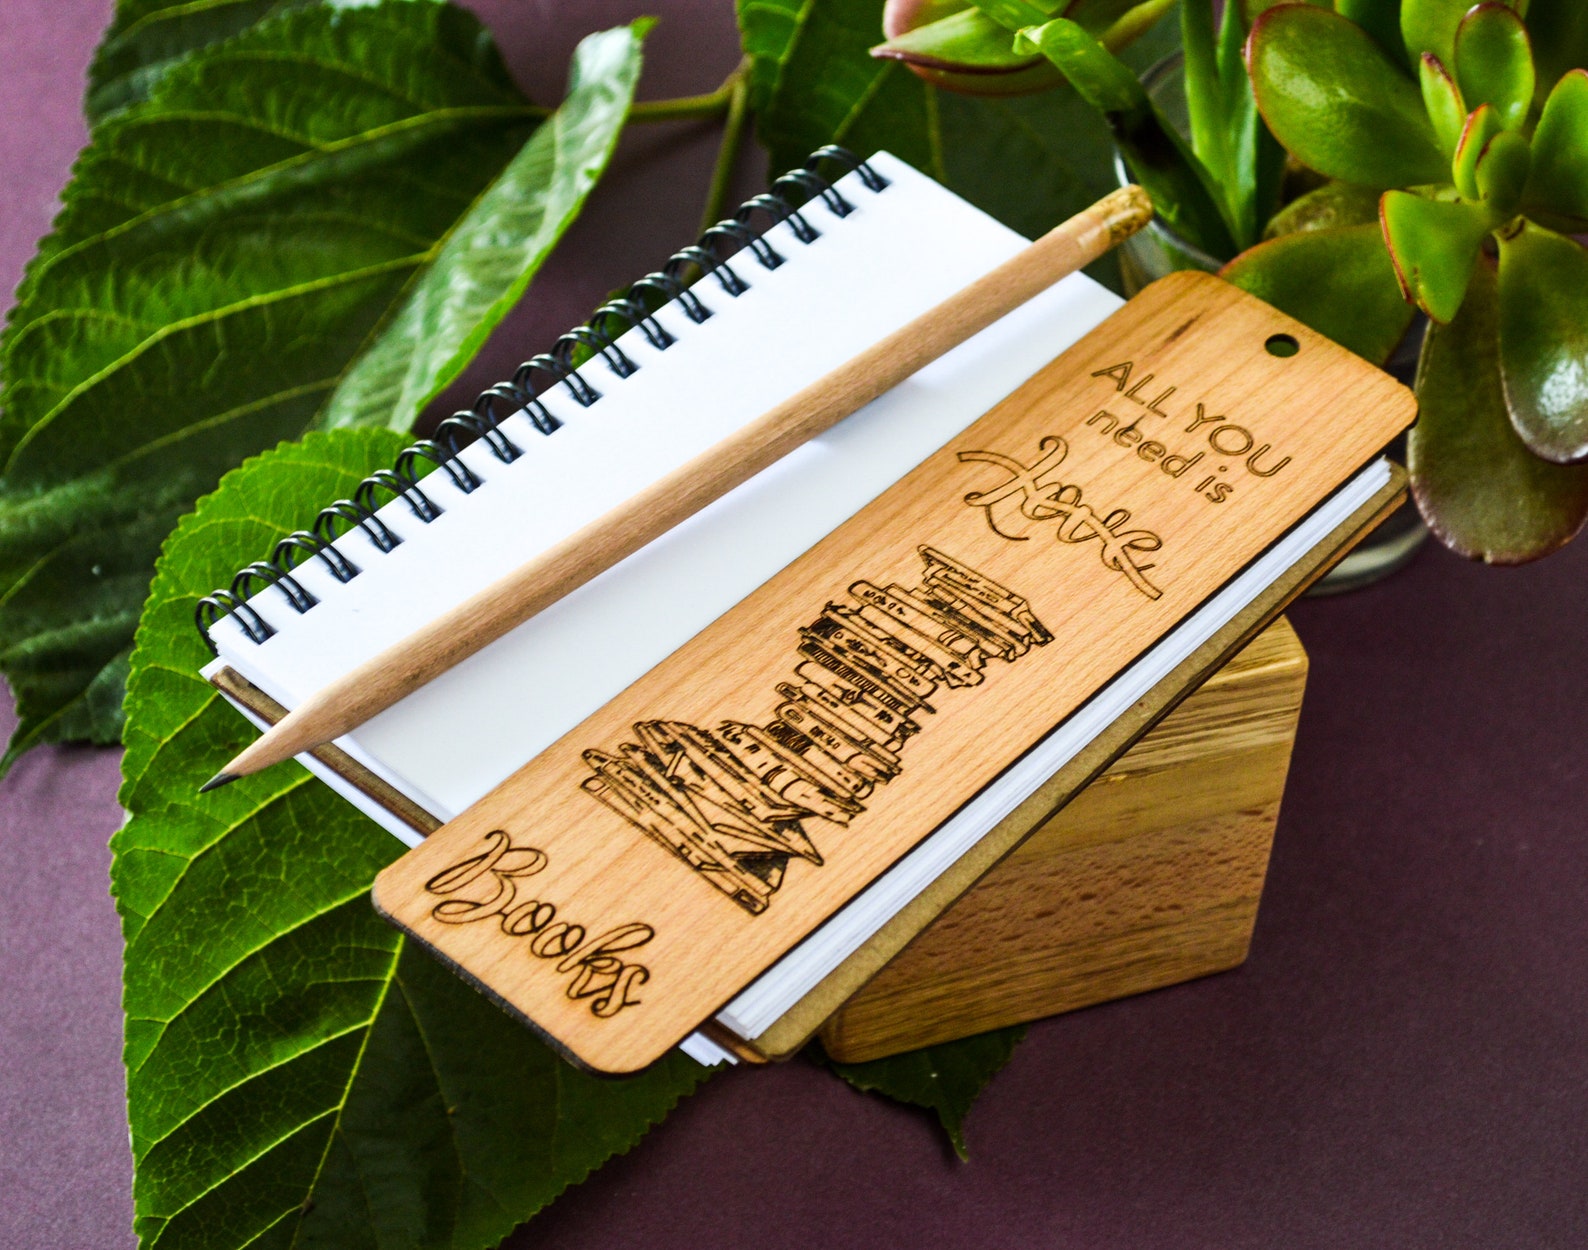 ALL YOU
need is
Love
Books